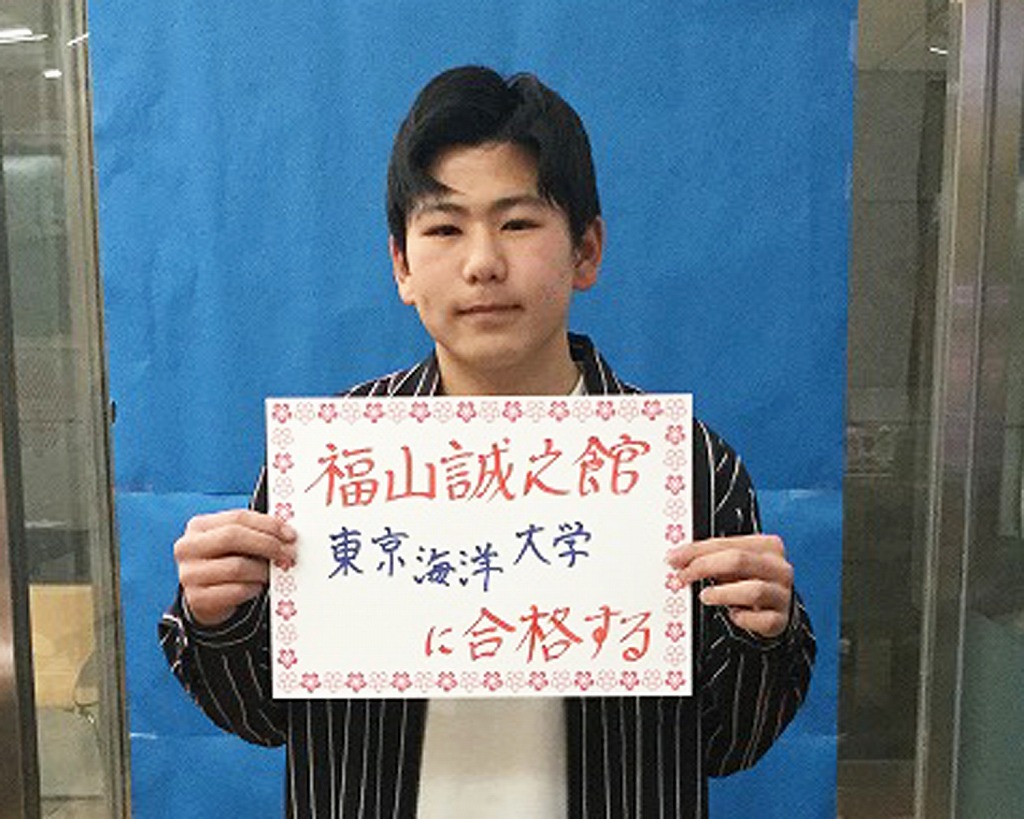 福山誠之館
東京海洋大学
に合格する